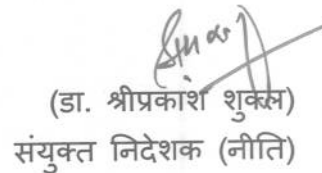 (डा. श्रीप्रकाश शुक्ल)
संयुक्त निदेशक (नीति)